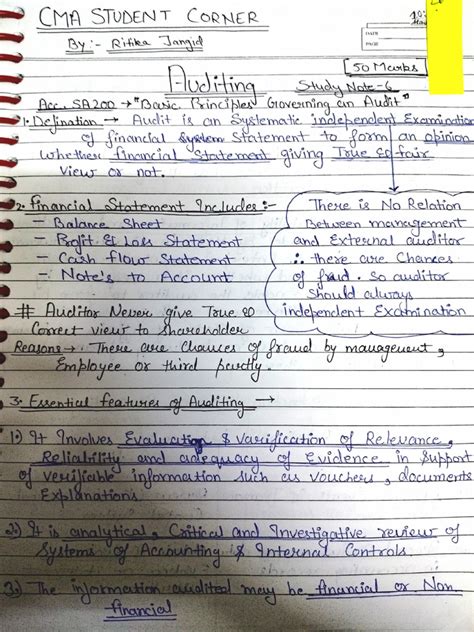 CMA STUDENT CORNER
By :- Ritika Jangid
DATE
PAGE
[50 Marks]
Auditing
Study Note-6
Acc. SA200 → "Basic Principles Governing an Audit"
1. Defination → Audit is an Systematic independent Examination
of financial System Statement to form an opinion
whether financial Statement giving True & fair
view or not.
2. Financial Statement Includes :-
- Balance Sheet
- Profit & Loss Statement
- Cash flow Statement
- Note's to Account
There is No Relation
Between management
and External auditor
∴ there are Chances
of fraud. So auditor
Should always
independent Examination
# Auditor Never give True &
Correct view to Shareholder
Reasons → There are Chances of fraud by management,
Employee or third party.
3. Essential features of Auditing →
1.) It Involves Evaluation & Varification of Relevance,
Reliability and adequacy of Evidence in Support
of verifiable information such as vouchers, documents
Explanations.
2.) It is analytical, Critical and Investigative review of
Systems of Accounting & Internal Controls.
3.) The information audited may be financial or Non
financial